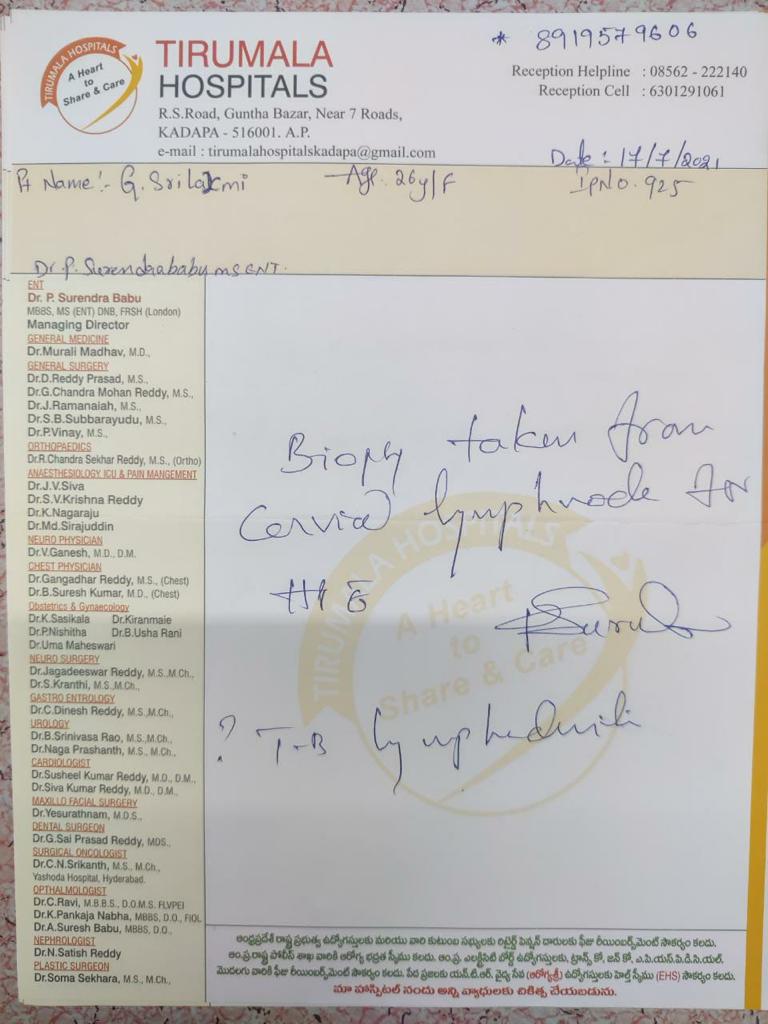 TIRUMALA HOSPITALS
A Heart
to
Share & Care
TIRUMALA
HOSPITALS
R.S.Road, Guntha Bazar, Near 7 Roads,
KADAPA - 516001. A.P.
e-mail : tirumalahospitalskadapa@gmail.com
* 8919579606
Reception Helpline : 08562 - 222140
Reception Cell : 6301291061
Date : 17/7/2021
Pt Name :- G. Srilaxmi Age. 26y/F IPNO. 925
Dr. P. Surendrababu MS ENT.
ENT
Dr. P. Surendra Babu
MBBS, MS (ENT) DNB, FRSH (London)
Managing Director
GENERAL MEDICINE
Dr.Murali Madhav, M.D.,
GENERAL SURGERY
Dr.D.Reddy Prasad, M.S.,
Dr.G.Chandra Mohan Reddy, M.S.,
Dr.J.Ramanaiah, M.S.,
Dr.S.B.Subbarayudu, M.S.,
Dr.P.Vinay, M.S.,
ORTHOPAEDICS
Dr.R.Chandra Sekhar Reddy, M.S., (Ortho)
ANAESTHESIOLOGY ICU & PAIN MANGEMENT
Dr.J.V.Siva
Dr.S.V.Krishna Reddy
Dr.K.Nagaraju
Dr.Md.Sirajuddin
NEURO PHYSICIAN
Dr.V.Ganesh, M.D., D.M.
CHEST PHYSICIAN
Dr.Gangadhar Reddy, M.S., (Chest)
Dr.B.Suresh Kumar, M.D., (Chest)
Obstetrics & Gynaecology
Dr.K.Sasikala Dr.Kiranmaie
Dr.P.Nishitha Dr.B.Usha Rani
Dr.Uma Maheswari
NEURO SURGERY
Dr.Jagadeeswar Reddy, M.S.,M.Ch.,
Dr.S.Kranthi, M.S.,M.Ch.,
GASTRO ENTROLOGY
Dr.C.Dinesh Reddy, M.S.,M.Ch.,
UROLOGY
Dr.B.Srinivasa Rao, M.S.,M.Ch.,
Dr.Naga Prashanth, M.S., M.Ch.,
CARDIOLOGIST
Dr.Susheel Kumar Reddy, M.D., D.M.,
Dr.Siva Kumar Reddy, M.D., D.M.,
MAXILLO FACIAL SURGERY
Dr.Yesurathnam, M.D.S.,
DENTAL SURGEON
Dr.G.Sai Prasad Reddy, MDS.,
SURGICAL ONCOLOGIST
Dr.C.N.Srikanth, M.S., M.Ch.,
Yashoda Hospital, Hyderabad.
OPTHALMOLOGIST
Dr.C.Ravi, M.B.B.S., D.O.M.S. FLVPEI
Dr.K.Pankaja Nabha, MBBS, D.O., FIOL
Dr.A.Suresh Babu, MBBS, D.O.,
NEPHROLOGIST
Dr.N.Satish Reddy
PLASTIC SURGEON
Dr.Soma Sekhara, M.S., M.Ch.,
Biopsy taken from
Cervical lymphnode for
HPE
? T-B lymphadenitis
TIRUMALA HOSPITALS
A Heart
to
Share & Care
ఆంధ్రప్రదేశ్ రాష్ట్ర ప్రభుత్వ ఉద్యోగస్తులకు మరియు వారి కుటుంబ సభ్యులకు రిటైర్డ్ పెన్షన్ దారులకు ఫీజు రీయింబర్స్‌మెంట్ సౌకర్యం కలదు.
ఆం.ప్ర.రాష్ట్ర పోలీస్ శాఖ వారికి ఆరోగ్య భద్రత స్కీము కలదు. ఆం.ప్ర. ఎలక్ట్రిసిటి బోర్డ్ ఉద్యోగస్తులకు, ట్రాన్స్ కో, జన్ కో, ఎ.పి.యస్.పి.డి.సి.యల్.
మొదలగు వారికి ఫీజు రీయింబర్స్‌మెంట్ సౌకర్యం కలదు. పేద ప్రజలకు యన్.టి.ఆర్. వైద్య సేవ (ఆరోగ్యశ్రీ) ఉద్యోగస్తులకు హెల్త్ స్కీము (EHS) సౌకర్యం కలదు.
మా హాస్పిటల్ నందు అన్ని వ్యాధులకు చికిత్స చేయబడును.